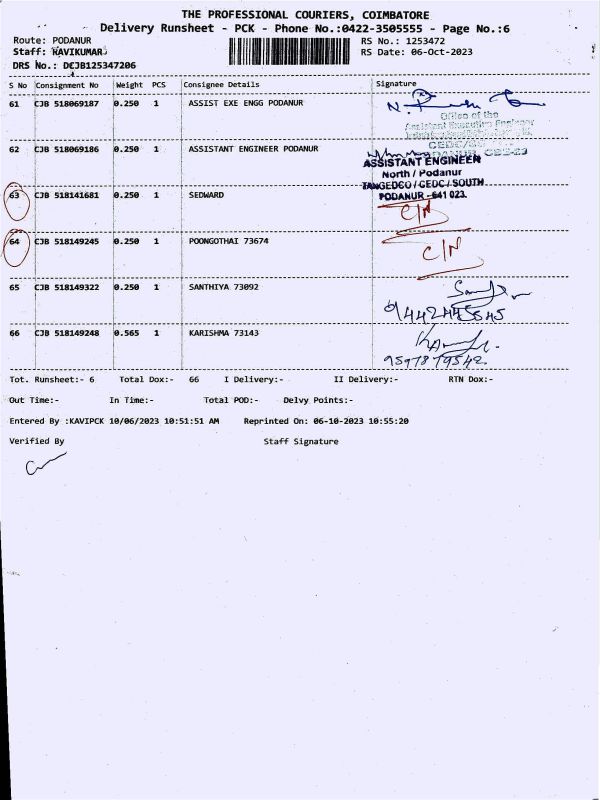 THE PROFESSIONAL COURIERS, COIMBATORE
Delivery Runsheet - PCK - Phone No.:0422-3505555 - Page No.:6
Route: PODANUR RS No.: 1253472
Staff: KAVIKUMAR RS Date: 06-Oct-2023
DRS No.: DCJB125347206
S No Consignment No Weight PCS Consignee Details Signature
61 CJB 518069187 0.250 1 ASSIST EXE ENGG PODANUR
Office of the
Assistant Executive Engineer
62 CJB 518069186 0.250 1 ASSISTANT ENGINEER PODANUR
ASSISTANT ENGINEER
North / Podanur
TANGEDCO / CEDC / SOUTH
PODANUR - 641 023.
63 CJB 518141681 0.250 1 SEDWARD
C/N
64 CJB 518149245 0.250 1 POONGOTHAI 73674
C/N
65 CJB 518149322 0.250 1 SANTHIYA 73092
66 CJB 518149248 0.565 1 KARISHMA 73143
Tot. Runsheet:- 6 Total Dox:- 66 I Delivery:- II Delivery:- RTN Dox:-
Out Time:- In Time:- Total POD:- Delvy Points:-
Entered By :KAVIPCK 10/06/2023 10:51:51 AM Reprinted On: 06-10-2023 10:55:20
Verified By Staff Signature